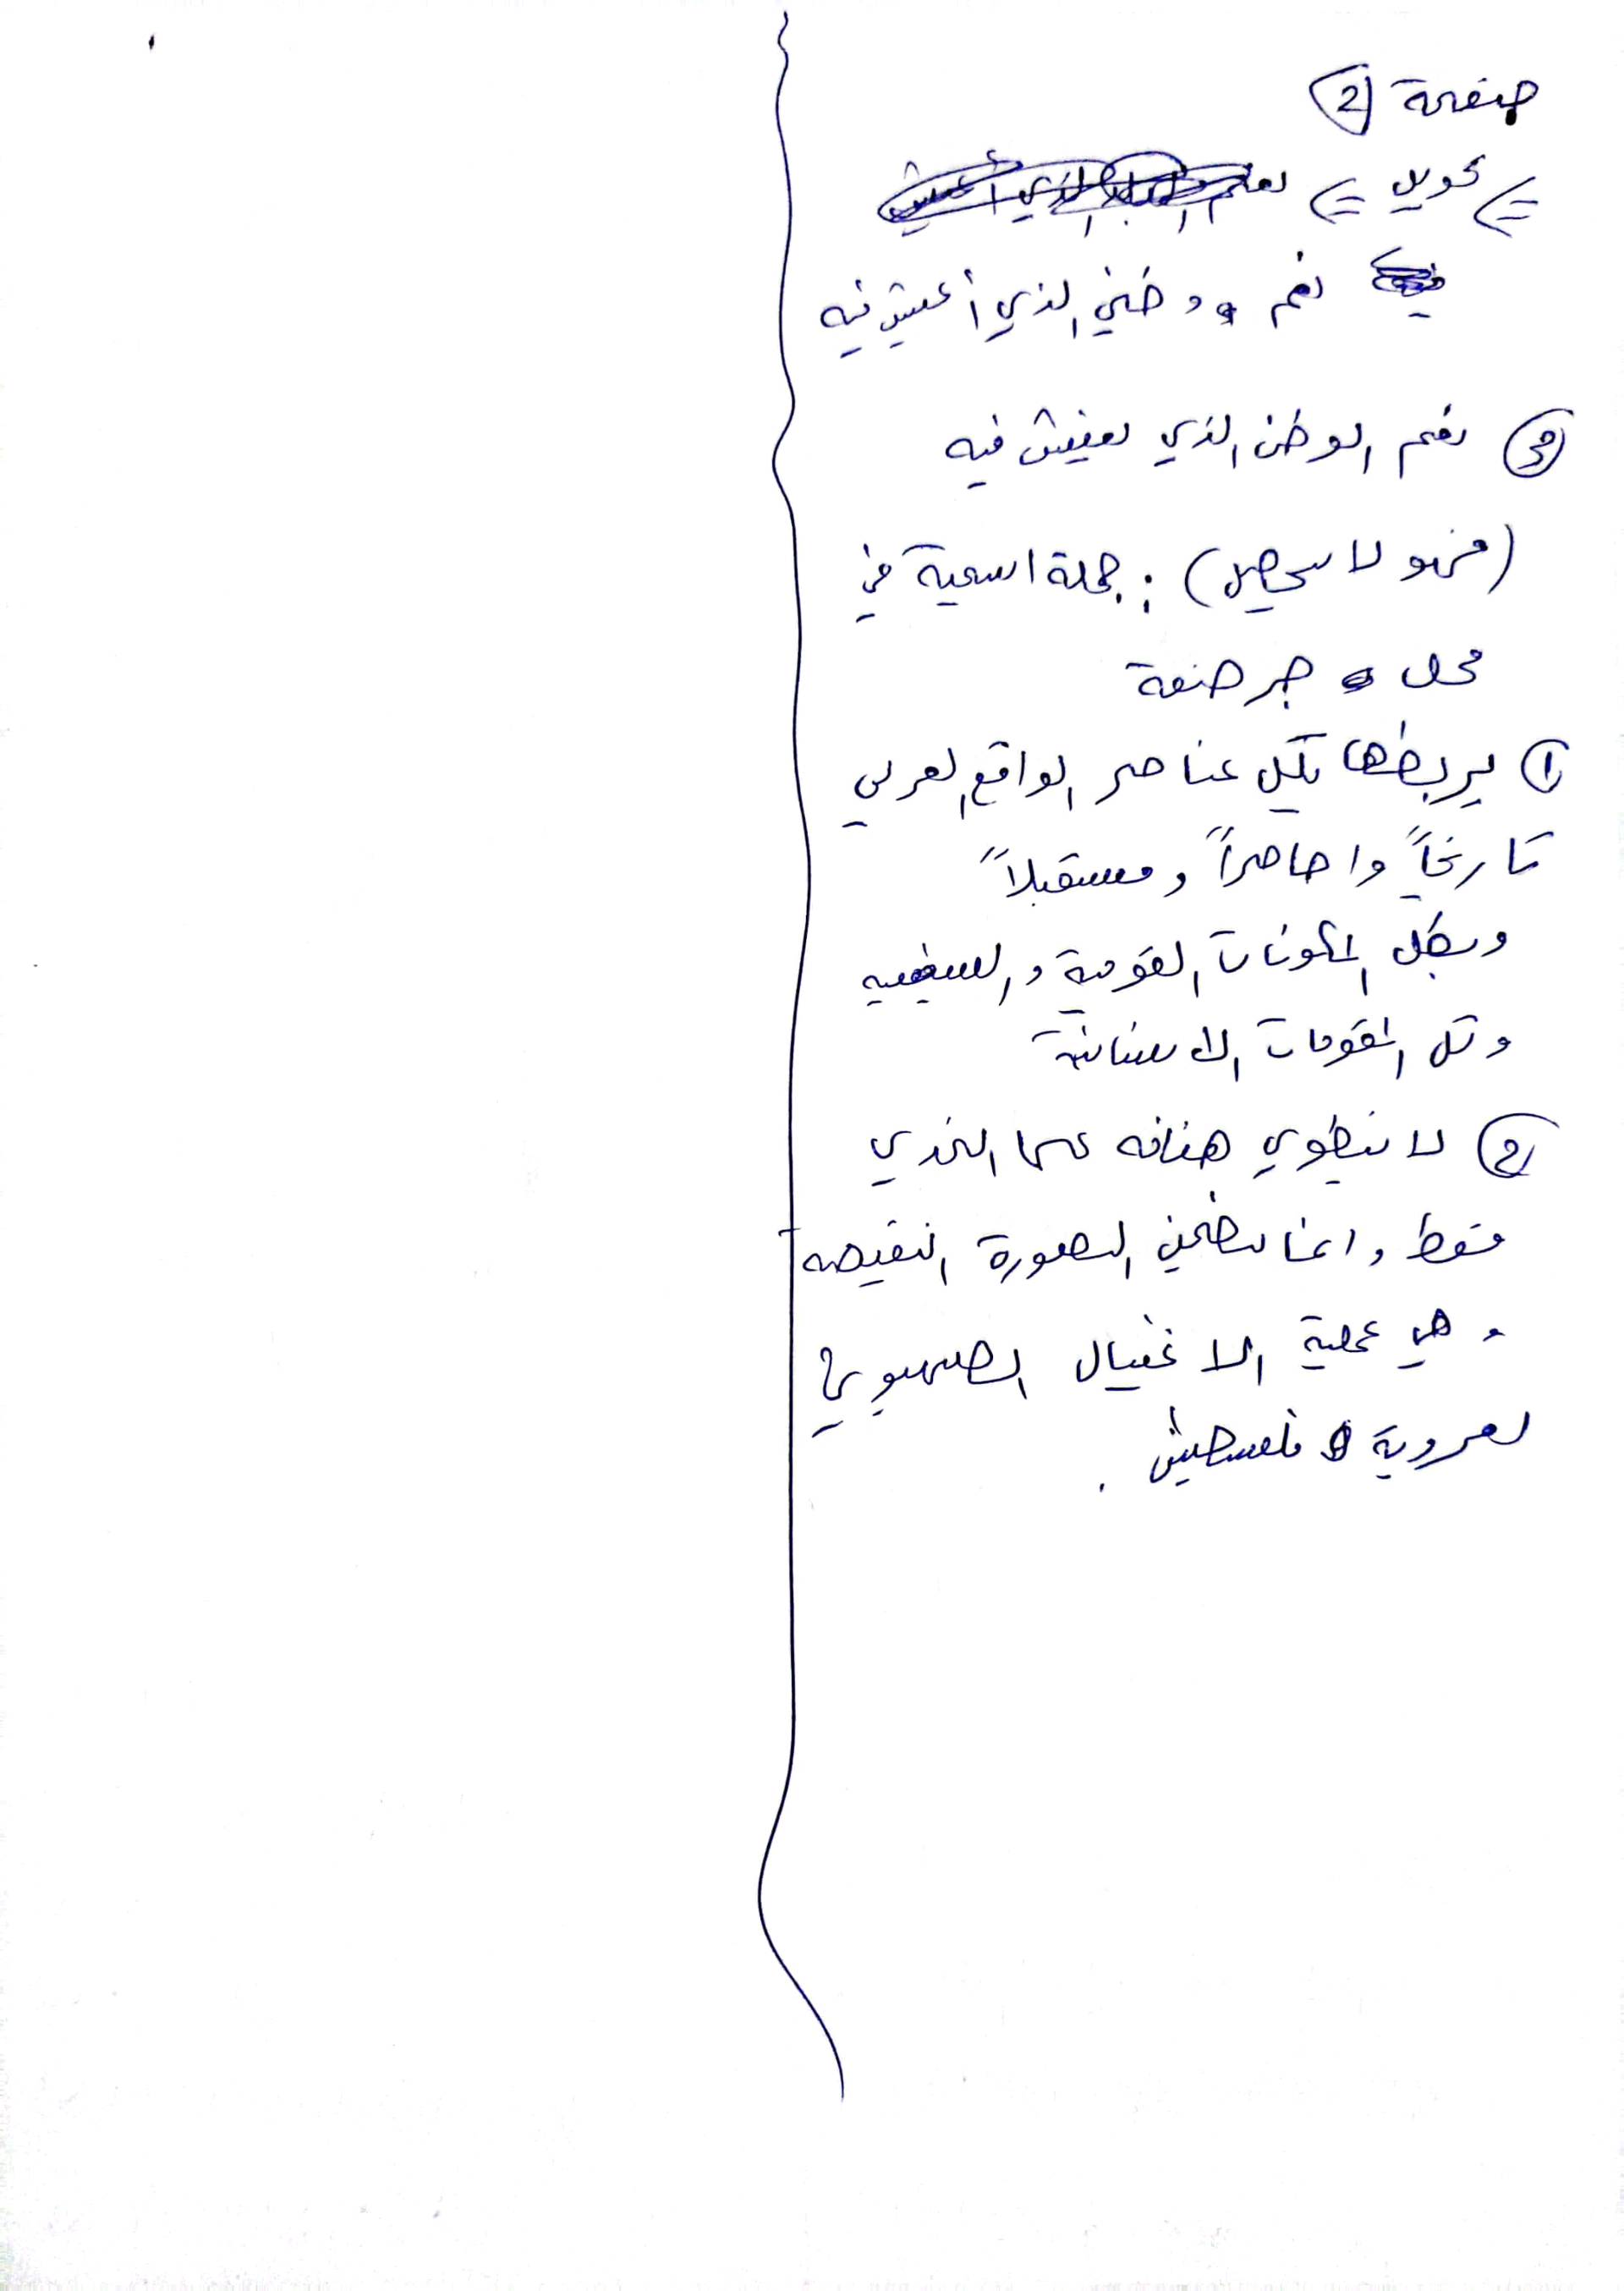 صفحة (2)
<= تحويل <= نعم
نعم وطني الذي أعيش فيه
(3) نعم الوطن الذي نعيش فيه
(منهو لا سحصل) : جملة اسمية في
محل جر صفة
(1) يربطها بكل عناصر الواقع العربي
تاريخاً واحاضراً ومستقبلاً
وبكل المكونات القومية و
وكل المقومات الانسانية
(2) لا ينطوي هتافه على التحدي
فقط وانما يتضمن الصورة النقيضه
وهي عملية الاغتيال الصهيوني
لعروبة فلسطين .